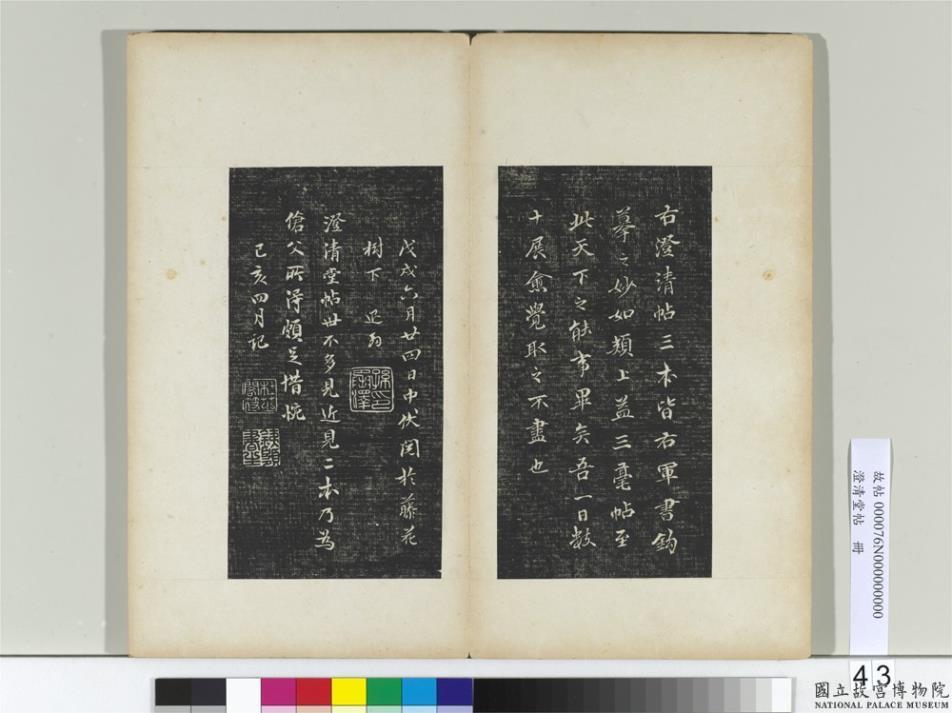 右澄清帖三本皆右軍書鈎
摹之妙如頰上益三毫帖至
此天下之能事畢矣吾一日数
十展愈覺取之不盡也
戊戌六月廿四日中伏閱於藤花
樹下
澄清堂帖世不多見近見二本乃為
傖父所得頗足惜惋
己亥四月記
故帖 000076N000000000
澄清堂帖 冊
43
國立故宮博物院
NATIONAL PALACE MUSEUM